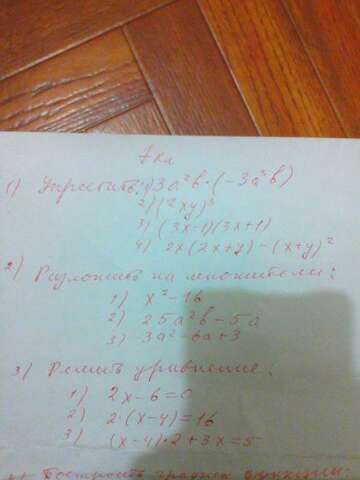 7 кл
1) Упростить: 1) 3a²b·(-3a³b)
2) (2xy)³
3) (3x-1)(3x+1)
4) 2x(2x+y)-(x+y)²
2) Разложить на множители:
1) x²-16
2) 25a²b-5a
3) 3a²-6a+3
3) Решить уравнение:
1) 2x-6=0
2) 2·(x-4)=16
3) (x-4)·2+3x=5
4) Построить график функции: